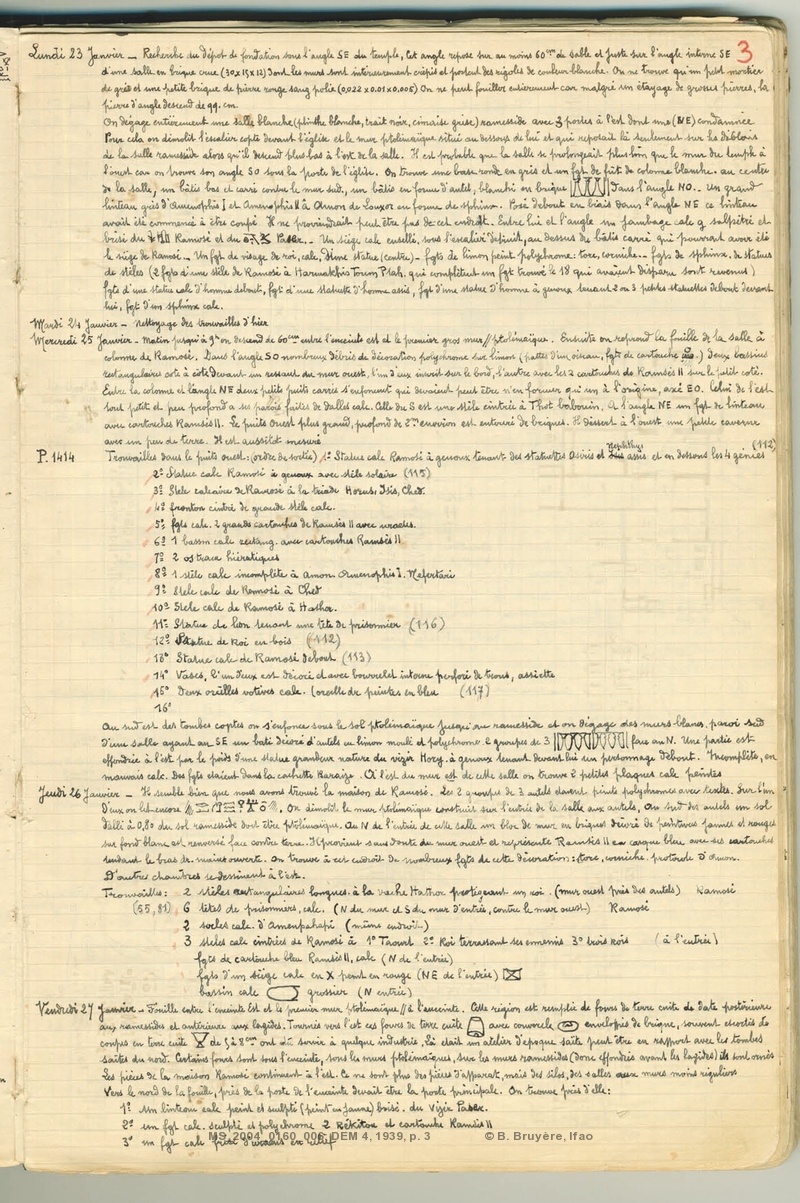 3
Lundi 23 Janvier — Recherche du dépôt de fondation sous l'angle SE du temple, Cet angle repose sur au moins 60cm de sable et juste sur l'angle interne SE
d'une salle en brique crue (30x15x12) dont les murs sont intérieurement crépis et portent des rigoles de couleur blanche. On ne trouve qu'un petit mortier
de grès et une petite brique de pierre rouge sang polie (0,022 x 0,01 x 0,005) On ne peut fouiller entièrement car malgré un étayage de grosses pierres, la
pierre d'angle descend de 99 cm.
On dégage entièrement une salle blanche (plinthe blanche, trait noir, cimaise grise) ramesside avec 3 portes à l'est dont une (NE) condamnée
Pour cela on démolit l'escalier copte devant l'église et le mur ptolémaïque situé au dessous de lui et qui reposait là seulement sur les déblais
de la salle ramesside alors qu'il descend plus bas à l'est de la salle. Il est probable que la salle se prolongeait plus loin que le mur du temple à
l'ouest car on trouve son angle SO sous la porte de l'église. On trouve une base ronde en grès et un fgt de fût de colonne blanche. au centre
de la salle, un bâtis bas et carré contre le mur sud, un bâtis en forme d'autel, blanchi en brique dans l'angle NO. Un grand
linteau grès d'Amenophis I et Amenophis II à Amon de Louxor en forme de sphinx. Posé debout en biais dans l'angle NE ce linteau
avait été commencé à être coupé Il ne proviendrait peut être pas de cet endroit. Entre lui et l'angle un jambage calc g salpêtré et
brisé du Ramosé et du Paser. Un siège calc ensellé, sous l'escalier défunt, au dessus de bâtis carré qui pourrait avoir été
le siège de Ramosé. Un fgt de visage de roi, calc, d'une statue (contre) — fgts de limon peint polychrome: tore, corniche — fgts de sphinx, de statues
de stèles (2 fgts d'une stèle de Ramosé à Harmakhis Toum, Ptah, qui complètent un fgt trouvé le 18 qui avaient disparu sont revenus)
fgts d'une statue calc d'homme debout, fgt d'une statuette d'homme assis, fgt d'une statue d'homme à genoux tenant 2 ou 3 petites statuettes debout devant
lui, fgt d'un sphinx calc.
Mardi 24 Janvier — Nettoyage des trouvailles d'hier
Mercredi 25 Janvier — Matin jusqu'à 9h on descend de 60cm entre l'enceinte est et le premier gros mur // ptolémaïque. Ensuite on reprend la fouille de la salle à
colonne de Ramosé, Dans l'angle SO nombreux débris de décoration polychrome sur limon (pattes d'un oiseau, fgts de cartouche) deux bassins
rectangulaires côte à côte devant un ressaut du mur ouest, l'un d'eux inscrit sur le bord, l'autre avec les 2 cartouches de Ramsès II sur le petit coté.
Entre la colonne et l'angle NE deux petits puits carrés s'enfoncent qui devaient peut être n'en former qu'un à l'origine, axé EO. Celui de l'est
tout petit et peu profond a ses parois faites de dalles calc. Celle du S est une stèle cintrée à Thot babouin. A l'angle NE un fgt de linteau
avec cartouches Ramsès II. Le puits ouest plus grand, profond de 2m environ est entouré de briques. Il dessert à l'ouest une petite caverne
avec un peu de terre. Il est aussitôt mesuré
P. 1414 Trouvailles dans le puits ouest: (ordre de sortie) 1º Statue calc Ramosé à genoux tenant des statuettes Osiris et Nephthys assis. et en dessous les 4 génies (112)
2º Statue calc Ramosé à genoux avec stèle solaire (115)
3º Stele calcaire de Ramosé à la triade Horus, Isis, Ched.
4º fronton cintré de grande stèle calc.
5º fgts calc. 2 grands cartouches de Ramsès II avec uraeus.
6º 1 bassin calc rectang. avec cartouches Ramsès II
7º 2 ostraca hiératiques
8º 1 stèle calc incomplète à Amon. Amenophis I. Nefertari
9º Stele calc de Ramosé à Ched
10º Stele calc de Ramosé à Hathor.
11º Statue de lion tenant une tête de prisonnier (116)
12º Statue de Roi en bois (112)
13º Statue calc de Ramosé debout (113)
14º Vases, l'un d'eux est décoré et avec bourrelet interne perforé de trous, assiette
15º Deux oreilles votives calc. (oreille dr peintes en bleu (117)
16º
Au sud est des tombes coptes on s'enfonce sous le sol ptolémaïque jusqu'au ramesside et on dégage des murs blancs. paroi sud
d'une salle ayant au SE un bati décoré d'autels en limon mouli et polychrome. 2 groupes de 3 face au N. Une partie est
effondrée à l'est par le poids d'une statue grandeur nature du vizir Hory. à genoux tenant devant lui un personnage debout. Incomplète, en
mauvais calc. Des fgts étaient dans la cachette Baraize. A l'est du mur est de cette salle on trouve 2 petites plaques calc peintes
Jeudi 26 Janvier — Il semble bien que nous avons trouvé la maison de Ramosé. Les 2 groupes de 3 autels étaient peints polychromes avec textes. Sur l'un
d'eux on lit encore. On démolit le mur ptolémaïque construit sur l'entrée de la salle aux autels. Au sud des autels un sol
dallé à 0,80 du sol ramesside doit être ptolémaïque. Au N de l'entrée de cette salle un bloc de mur en briques décoré de peintures jaunes et rouges
sur fond blanc est renversé face contre terre. Il provient sans doute du mur ouest et représente Ramsès II en casque bleu avec ses cartouches
tendant le bras dr. main ouverte. On trouve à cet endroit de nombreux fgts de cette décoration: tore, corniche. protomé d'Amon.
D'autres chambres se dessinent à l'est.
Trouvailles: 2 stèles rectangulaires longues. à la vache Hathor protégeant un roi. (mur ouest près des autels) Ramosé
(55, 81) 6 têtes de prisonniers, calc. (N du mur et S du mur d'entrée, contre le mur ouest) Ramosé
2 socles calc. d'Amenpahapi (même endroit)
3 steles calc cintrées de Ramosé à 1º Taourt 2º Roi terrassant ses ennemis 3º trois rois (à l'entrée)
fgts de cartouche bleu Ramsès II, calc (N de l'entrée)
fgts d'un siège calc en X peint en rouge (NE de l'entrée)
bassin calc grossier (N entrée)
Vendredi 27 Janvier — Fouille entre l'enceinte Est et le premier mur ptolémaïque // à l'enceinte. Cette région est remplie de fours de terre cuite de date postérieure
aux ramessides et antérieure aux lagides. Tournés vers l'est ces fours de terre cuite avec couvercle enveloppés de brique, souvent escortés de
coupes en terre cuite de 5 à 8cm ont dû servir à quelque industrie. Là était un atelier d'époque saïte peut être en rapport avec les tombes
saïtes du nord. Certains fours sont sous l'enceinte, sous les murs ptolémaïques, sur les murs ramessides (donc effondrés avant les lagides) ils sont ornés
Les pièces de la maison Ramosé continuent à l'est. Ce ne sont plus des pièces d'apparat, mais des silos, des salles aux murs moins réguliers
Vers le nord de la fouille, près de la porte de l'enceinte devait être la porte principale. On trouve près d'elle:
1º Un linteau calc peint et sculpté (peint en jaune) brisé. du Vizir Paser.
2º un fgt calc. sculpté et polychrome 2 Rekitou et cartouche Ramsès II
3º un fgt calc frise d'uraeus en relief
MS_2004_0160_006, DEM 4, 1939, p. 3 © B. Bruyère, Ifao